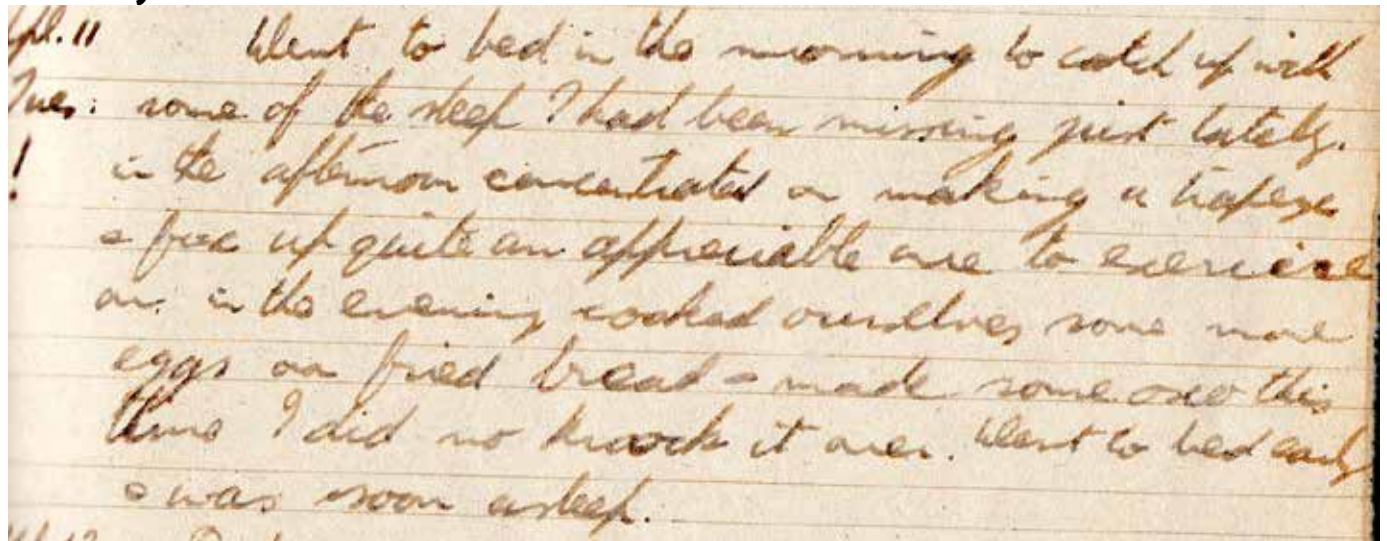 Went to bed in the morning to catch up with
Tues: some of the sleep I had been missing just lately.
! in the afternoon concentrated on making a trapeze
& fixed up quite an appreciable one to exercise
on. in the evening cooked ourselves some more
eggs on fried bread & made some oxo this
time I did no knock it over. Went to bed early
& was soon asleep.